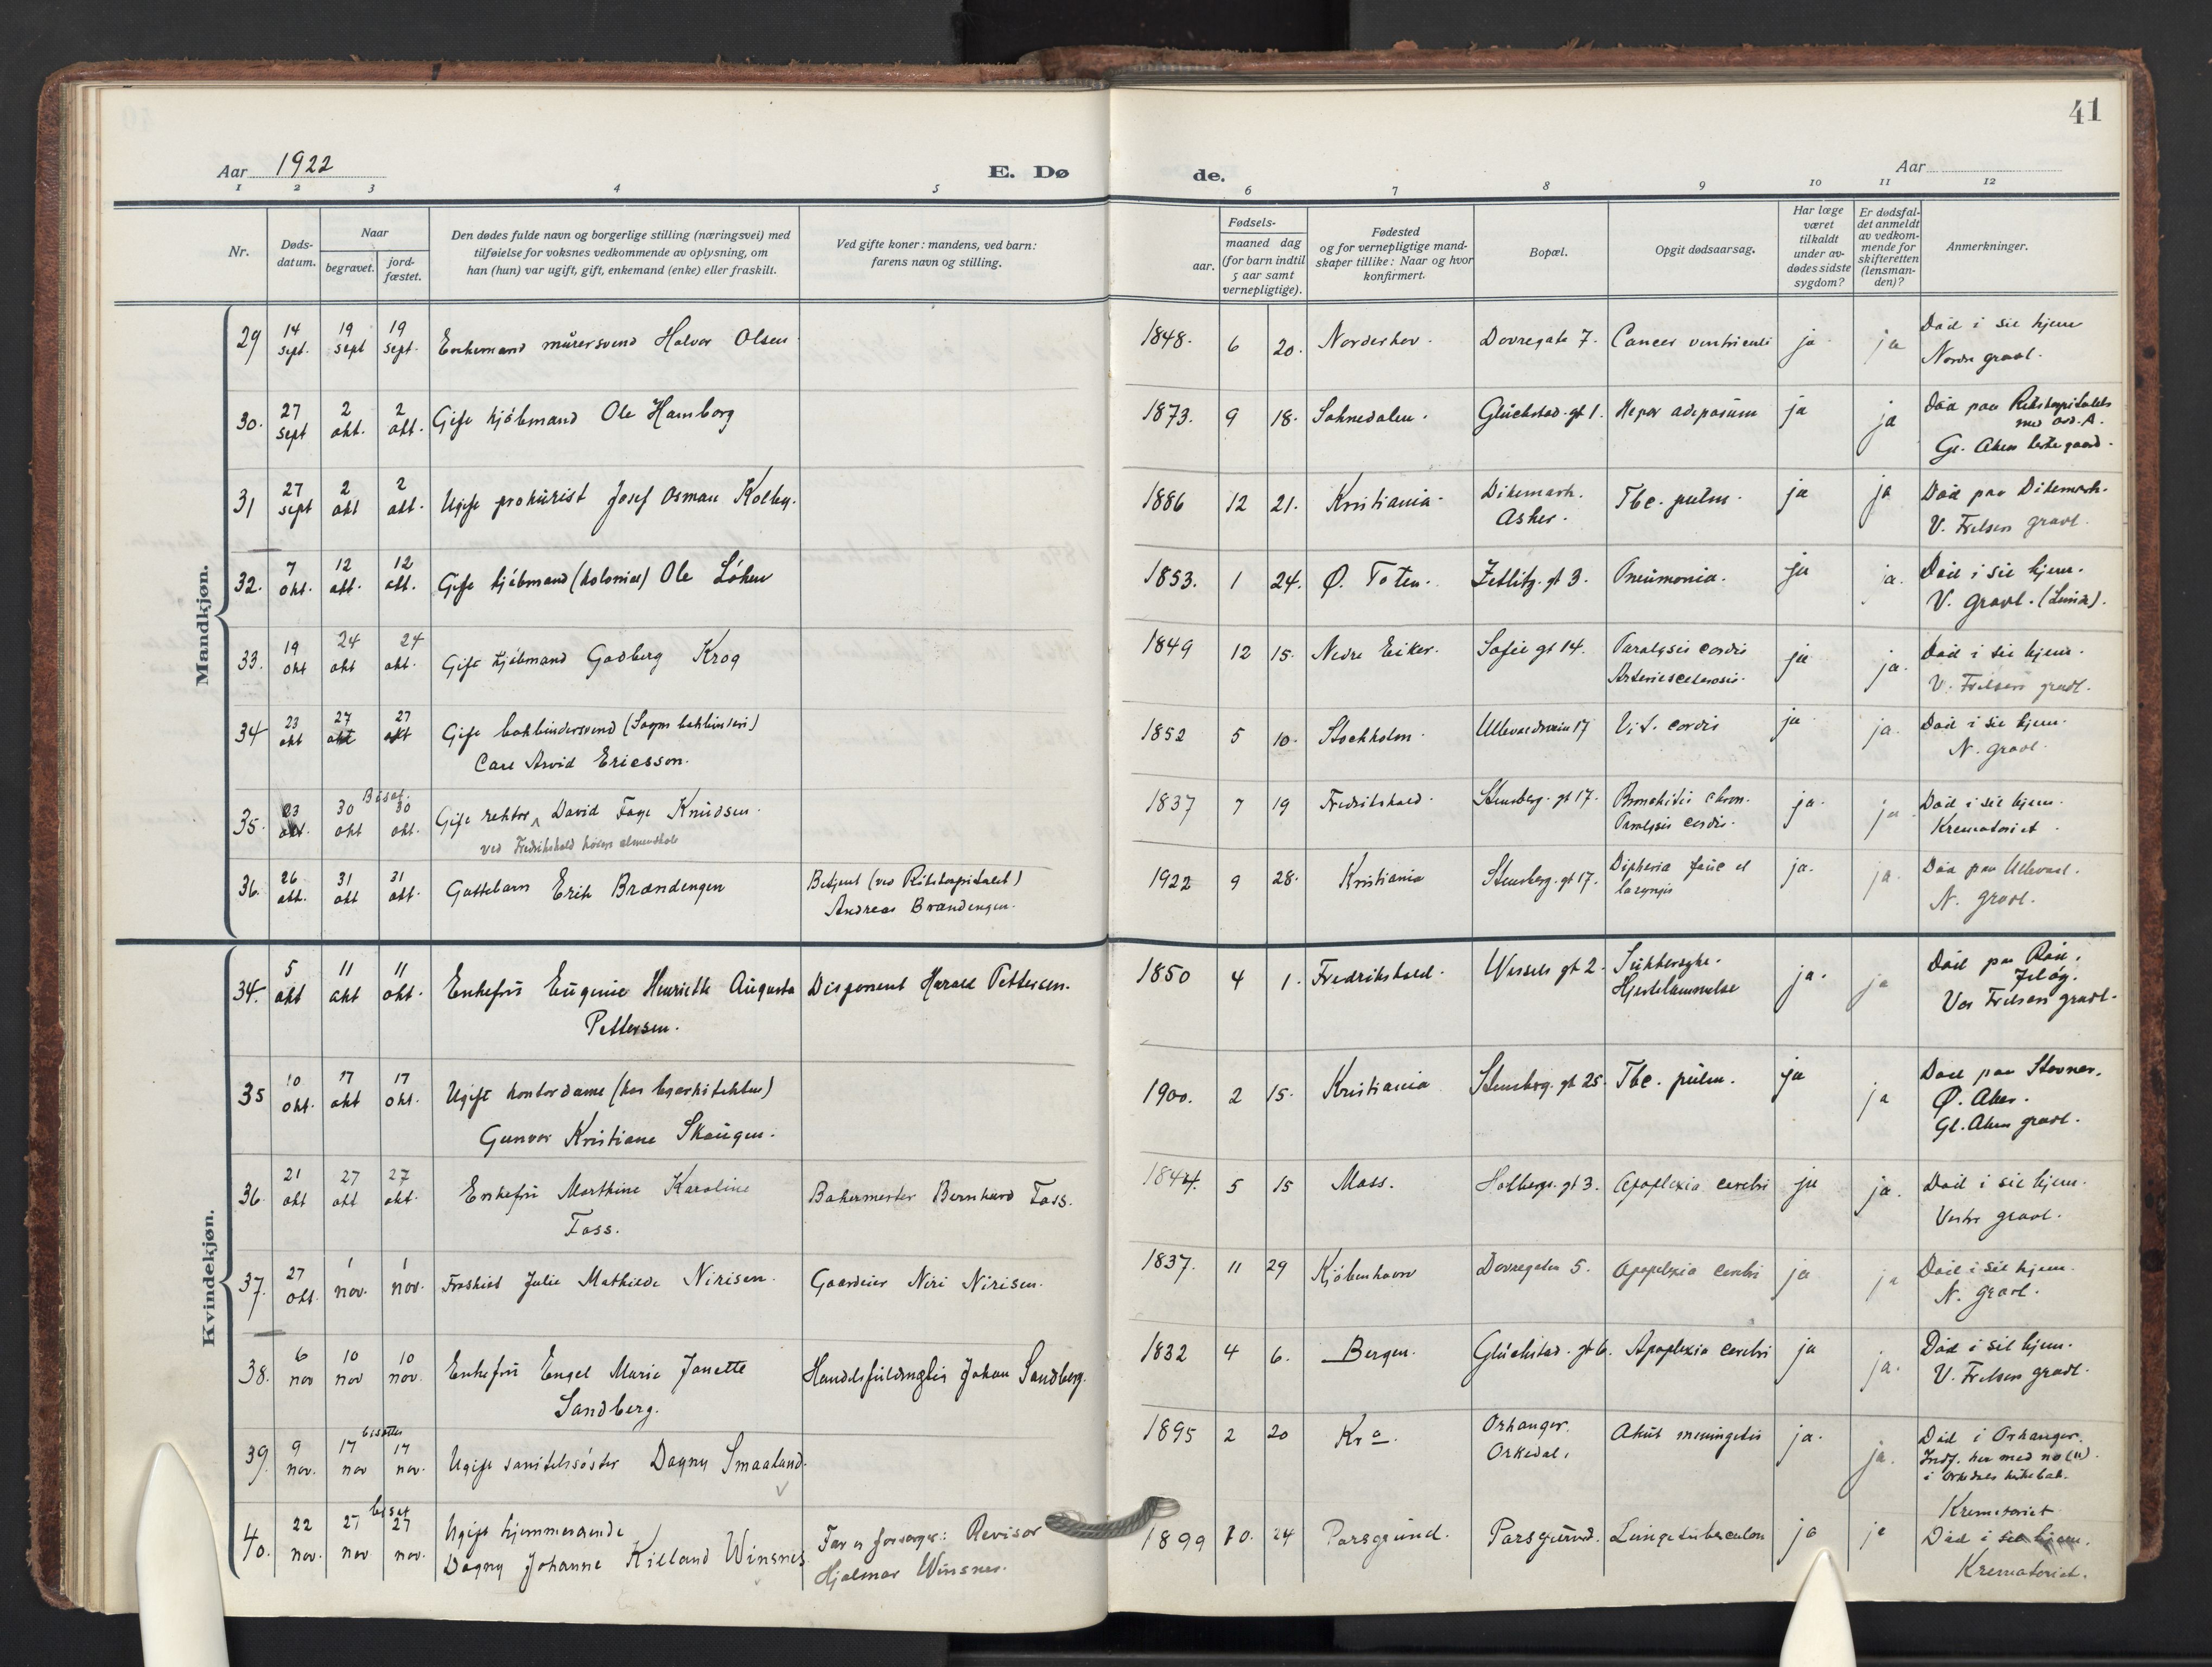 41
Aar 1922
E. Dø
de.
Aar
1 2 3 4 5 6 7 8 9 10 11 12
Nr.
Døds-
datum.
Naar
begravet.
jord-
fæstet.
Den dødes fulde navn og borgerlige stilling (næringsvei) med
tilføielse for voksnes vedkommende av oplysning, om
han (hun) var ugift, gift, enkemand (enke) eller fraskilt.
Ved gifte koner: mandens, ved barn:
farens navn og stilling.
Fødsels-
aar.
maaned dag
(for barn indtil
5 aar samt
vernepligtige).
Fødested
og for vernepligtige mand-
skaper tillike: Naar og hvor
konfirmert.
Bopæl.
Opgit dødsaarsag.
Har læge
været
tilkaldt
under av-
dødes sidste
sygdom?
Er dødsfal-
det anmeldt
av vedkom-
mende for
skifteretten
(lensman-
den)?
Anmerkninger.
Mandkjøn.
29 14 sept. 19 sept 19 sept. Enkemand murersvend Halvor Olsen 1848. 6 20. Norderhov. Dovregate 7. Cancer ventriculi ja ja Död i sit hjem
Nordre gravl.
30. 27 sept 2 okt. 2 okt. Gift kjöbmand Ole Hamborg 1873. 9 18. Soknedalen. Glückstad. gt 1. Hepar adiposum ja ja Död paa Rikshospitalets
med avd. A.
Gl. Akers kirkegaard.
31 27 sept 2 okt 2 okt. Ugift prokurist Josef Osman Kolby. 1886 12 21. Kristiania. Dikemark.
Asker. Tbc. pulm. ja ja Död paa Dikemark.
V. Frelsers gravl.
32. 7 okt. 12 okt. 12 okt. Gift kjöbmand (kolonial) Ole Löken 1853. 1 24. Ø. Toten. Zetlitz. gt 3. Pneumonia. ja ja. Död i sit hjem.
V. gravl.
33. 19 okt 24 okt 24 okt. Gift kjöbmand Godberg Krog 1849 12 15. Nedre Eiker. Sofie gt 14. Paralysis cordis
Arteriosclerosis. ja ja. Död i sit hjem.
V. Frelsers gravl.
34 23 okt 27 okt 27 okt Gift bokbindersvend (Sagns bokbinderi)
Carl Arvid Ericsson. 1852 5 10. Stockholm. Ullevaalsveien 17 Vit. cordis ja ja. Död i sit hjem.
N. gravl.
35. 23 okt. 30 okt Bisat. 30 okt. Gift rektor David Faye Knudsen.
ved Fredrikshald höiere almenskole 1837 7 19 Fredrikshald. Stensberg. gt 17. Bronchitis chron.
Paralysis cordis. ja. ja. Död i sit hjem.
Krematoriet.
36. 26 okt. 31 okt 31 okt. Guttebarn Erik Brændengen Betjent (ved Rikshospitalet)
Andreas Brændengen. 1922 9 28. Kristiania Stensberg. gt 17. Diphteria fauc et
laryngis ja. ja. Död paa Ullevaal.
N. gravl.
Kvindekjøn.
34. 5 okt 11 okt 11 okt. Enkefru Eugenie Henriette Augusta Disponent Harald Pettersen.
Pettersen. 1850 4 1. Fredrikshald. Wessels gt 2. Sukkersyke.
Hjertelammelse ja. ja Död paa Röd,
Jelöy.
Vor Frelsers gravl.
35 10 okt. 17 okt 17 okt. Ugift kontordame (hos byarkitekten)
Gunvor Kristiane Skaugen. 1900. 2 15. Kristiania Stensberg. gt 25. Tbc. pulm. ja ja Död paa Stovner,
Ø. Aker.
Gl. Akers gravl.
36. 21 okt 27 okt 27 okt. Enkefru Marthine Karoline Bakermester Bernhard Foss.
Foss. 1844. 5 15 Moss. Holbergs. gt 3. Apoplexia cerebri ja ja. Död i sit hjem.
Vestre gravl.
37. 27 okt. 1 nov. 1 nov. Fraskilt Julie Mathilde Nirisen. Gaardeier Niri Nirisen. 1837. 11 29 Kjöbenhavn Dovregaten 5. Apoplexia cerebri ja ja Död i sit hjem.
N. gravl.
38. 6 nov 10 nov 10 nov. Enkefru Engel Marie Janette Handelsfuldmægtig Johan Sandberg.
Sandberg. 1832 4 6. Bergen. Glückstad. gt 6. Apoplexia cerebri ja ja. Död i sit hjem.
V. Frelsers gravl.
39. 9 nov. 17 nov bisattes 17 nov. Ugift sanitetssöster Dagny Smaaland. 1895 2 20 Kra. Orkanger.
Orkedal. Akut meningitis ja. ja. Död i Orkanger.
Indf. her med no (u).
i Orkdals kirkebok.
Krematoriet
40. 22 nov. 27 nov bisat 27 nov. Ugift hjemmeværende
Dagny Johanne Killand Winsnes Far er forsörger: Revisor
Hjalmar Winsnes. 1899 10. 24 Porsgrund. Porsgrund. Lungetuberculose ja ja Död i sit hjem.
Krematoriet.